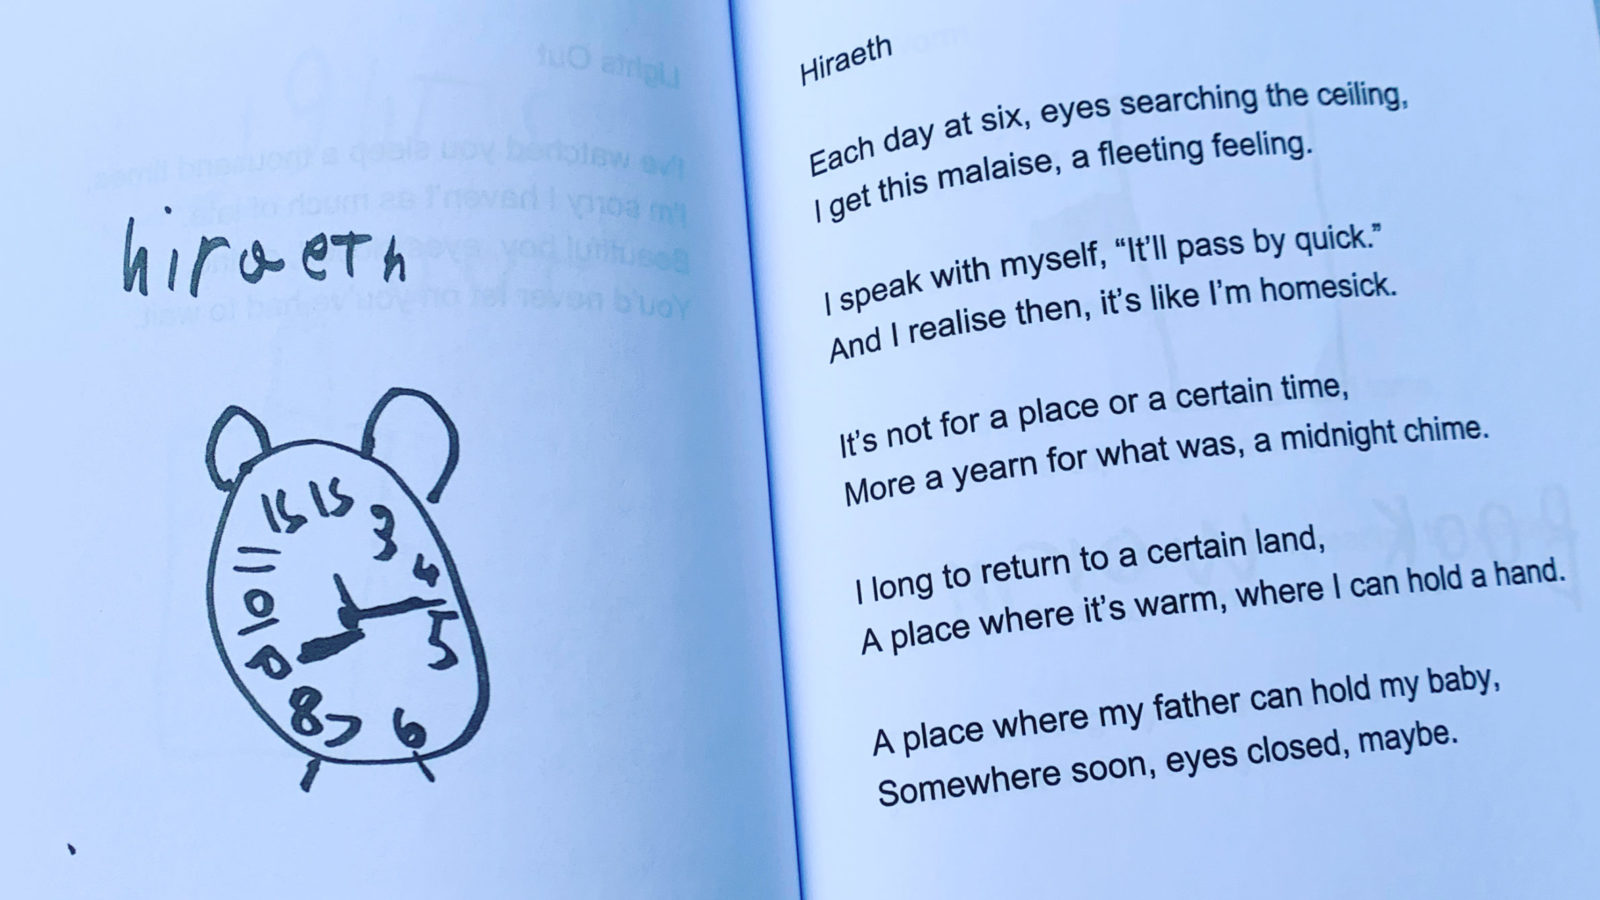 hiraeth
3
4
5
6
8
10
11
Hiraeth
Each day at six, eyes searching the ceiling,
I get this malaise, a fleeting feeling.
I speak with myself, “It’ll pass by quick.”
And I realise then, it’s like I’m homesick.
It’s not for a place or a certain time,
More a yearn for what was, a midnight chime.
I long to return to a certain land,
A place where it’s warm, where I can hold a hand.
A place where my father can hold my baby,
Somewhere soon, eyes closed, maybe.